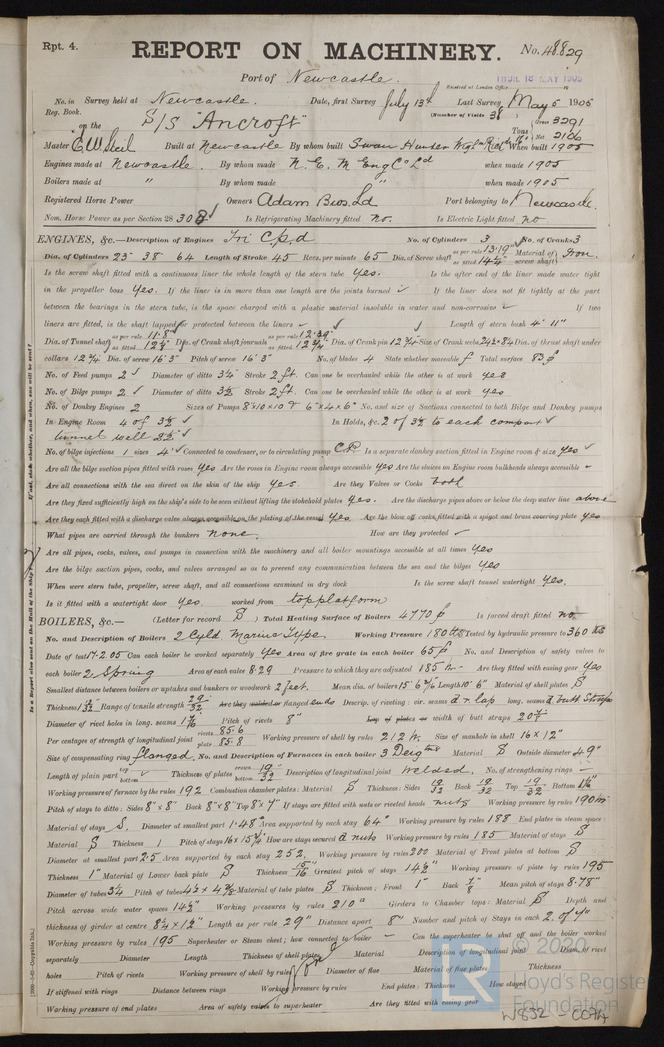 Rpt. 4.
REPORT ON MACHINERY. No. 48829
Port of Newcastle.
THUR. 18 MAY 1905
Received at London Office
No. in Survey held at Newcastle. Date, first Survey July 13th Last Survey May 5 1905
Reg. Book. (Number of Visits 38)
on the S/S "Ancroft" Tons Gross 3291 Net 2106
Master E W Steil Built at Newcastle By whom built Swan Hunter When built 1905
Engines made at Newcastle. By whom made N. E. M Eng Co Ld when made 1905
Boilers made at " By whom made " when made 1905
Registered Horse Power Owners Adam Bros. Ld Port belonging to Newcastle.
Nom. Horse Power as per Section 28 308 Is Refrigerating Machinery fitted No. Is Electric Light fitted no
ENGINES, &c.—Description of Engines Tri Cpd No. of Cylinders 3 No. of Cranks 3
Dia. of Cylinders 23 38 64 Length of Stroke 45 Revs. per minute 65 Dia. of Screw shaft as per rule 13.19 as fitted 14 1/4 Material of screw shaft Iron.
Is the screw shaft fitted with a continuous liner the whole length of the stern tube Yes. Is the after end of the liner made water tight
in the propeller boss Yes. If the liner is in more than one length are the joints burned ✓ If the liner does not fit tightly at the part
between the bearings in the stern tube, is the space charged with a plastic material insoluble in water and non-corrosive ✓ If two
liners are fitted, is the shaft lapped or protected between the liners ✓ Length of stern bush 4' 11"
Dia. of Tunnel shaft as per rule 11.8 as fitted 12 1/8 Dia. of Crank shaft journals as per rule 12.39 as fitted 12 3/4 Dia. of Crank pin 12 3/4 Size of Crank webs 24 1/2 × 8 1/4 Dia. of thrust shaft under
collars 12 3/4 Dia. of screw 16' 3" Pitch of screw 16' 3" No. of blades 4 State whether moveable Total surface 83
No. of Feed pumps 2 ✓ Diameter of ditto 3 1/4 Stroke 2 ft. Can one be overhauled while the other is at work yes
No. of Bilge pumps 2 ✓ Diameter of ditto 3 1/2 Stroke 2 ft. Can one be overhauled while the other is at work yes
No. of Donkey Engines 2 Sizes of Pumps 8 × 10 × 10 & 6 × 4 × 6 No. and size of Suctions connected to both Bilge and Donkey pumps
In Engine Room 4 of 3 1/2 ✓ In Holds, &c. 2 of 3 1/2 to each compart ✓
tunnel well 3 1/2 ✓
No. of bilge injections 1 sizes 4 ✓ Connected to condenser, or to circulating pump C.P. Is a separate donkey suction fitted in Engine room & size yes ✓
Are all the bilge suction pipes fitted with roses Yes Are the roses in Engine room always accessible yes Are the sluices on Engine room bulkheads always accessible –
Are all connections with the sea direct on the skin of the ship Yes. Are they Valves or Cocks both
Are they fixed sufficiently high on the ship's side to be seen without lifting the stokehold plates Yes. Are the discharge pipes above or below the deep water line above
Are they each fitted with a discharge valve always accessible on the plating of the vessel Yes. Are the blow off cocks fitted with a spigot and brass covering plate Yes
What pipes are carried through the bunkers None. How are they protected ✓
Are all pipes, cocks, valves, and pumps in connection with the machinery and all boiler mountings accessible at all times Yes
Are the bilge suction pipes, cocks, and valves arranged so as to prevent any communication between the sea and the bilges Yes
When were stern tube, propeller, screw shaft, and all connections examined in dry dock Is the screw shaft tunnel watertight Yes.
Is it fitted with a watertight door Yes worked from top platform
BOILERS, &c.— (Letter for record S) Total Heating Surface of Boilers 4770 Is forced draft fitted no.
No. and Description of Boilers 2 Cyld Marine Type Working Pressure 180 lbs Tested by hydraulic pressure to 360 lbs
Date of test 17.2.05 Can each boiler be worked separately Yes Area of fire grate in each boiler 65 No. and Description of safety valves to
each boiler 2 Spring Area of each valve 8.29 Pressure to which they are adjusted 185 Are they fitted with easing gear Yes
Smallest distance between boilers or uptakes and bunkers or woodwork 2 feet. Mean dia. of boilers 15' 6 3/16" Length 10' 6" Material of shell plates S
Thickness 1 3/32 Range of tensile strength 29/32 Are they welded or flanged ends Descrip. of riveting: cir. seams d r lap long. seams d. butt Straps
Diameter of rivet holes in long. seams 1 3/16 Pitch of rivets 8" Lap of plates or width of butt straps 20
Per centages of strength of longitudinal joint rivets 85.6 plate 85.8 Working pressure of shell by rules 212 lbs. Size of manhole in shell 16 × 12"
Size of compensating ring flanged No. and Description of Furnaces in each boiler 3 Deightons Material S Outside diameter 49"
Length of plain part top bottom ✓ Thickness of plates crown bottom 19/32 Description of longitudinal joint Welded. No. of strengthening rings –
Working pressure of furnace by the rules 192 Combustion chamber plates: Material S Thickness: Sides 19/32 Back 19/32 Top 19/32 Bottom
Pitch of stays to ditto: Sides 8" × 8" Back 8" × 8" Top 8 × 7" If stays are fitted with nuts or riveted heads nuts Working pressure by rules 190
Material of stays S. Diameter at smallest part 1.48" Area supported by each stay 64" Working pressure by rules 188 End plates in steam space
Material S Thickness 1 Pitch of stays 16 × 15 3/4" How are stays secured d nuts Working pressure by rules 185 Material of stays S
Diameter at smallest part 2.5 Area supported by each stay 252. Working pressure by rules 200 Material of Front plates at bottom S
Thickness 1" Material of Lower back plate S Thickness 15/16 Greatest pitch of stays 14 1/2" Working pressure of plate by rules 195
Diameter of tubes 3 1/4 Pitch of tubes 4 1/2 × 4 3/8 Material of tube plates S Thickness: Front 1" Back 7/8" Mean pitch of stays 8.78"
Pitch across wide water spaces 14 1/2" Working pressures by rules 210 Girders to Chamber tops: Material S Depth and
thickness of girder at centre 8 1/4 × 1 1/2" Length as per rule 29" Distance apart 8" Number and pitch of Stays in each 2. of 7"
Working pressure by rules 195 Superheater or Steam chest; how connected to boiler – Can the superheater be shut off and the boiler worked
separately Diameter Length Thickness of shell plates Material Description of longitudinal joint Diam. of rivet
holes Pitch of rivets Working pressure of shell by rules None Diameter of flue Material of flue plates Thickness
If stiffened with rings Distance between rings Working pressure by rules End plates: Thickness How stayed
Working pressure of end plates Area of safety valves to superheater Are they fitted with easing gear
© 2020
Lloyd's Register
Foundation
W832 - 0094